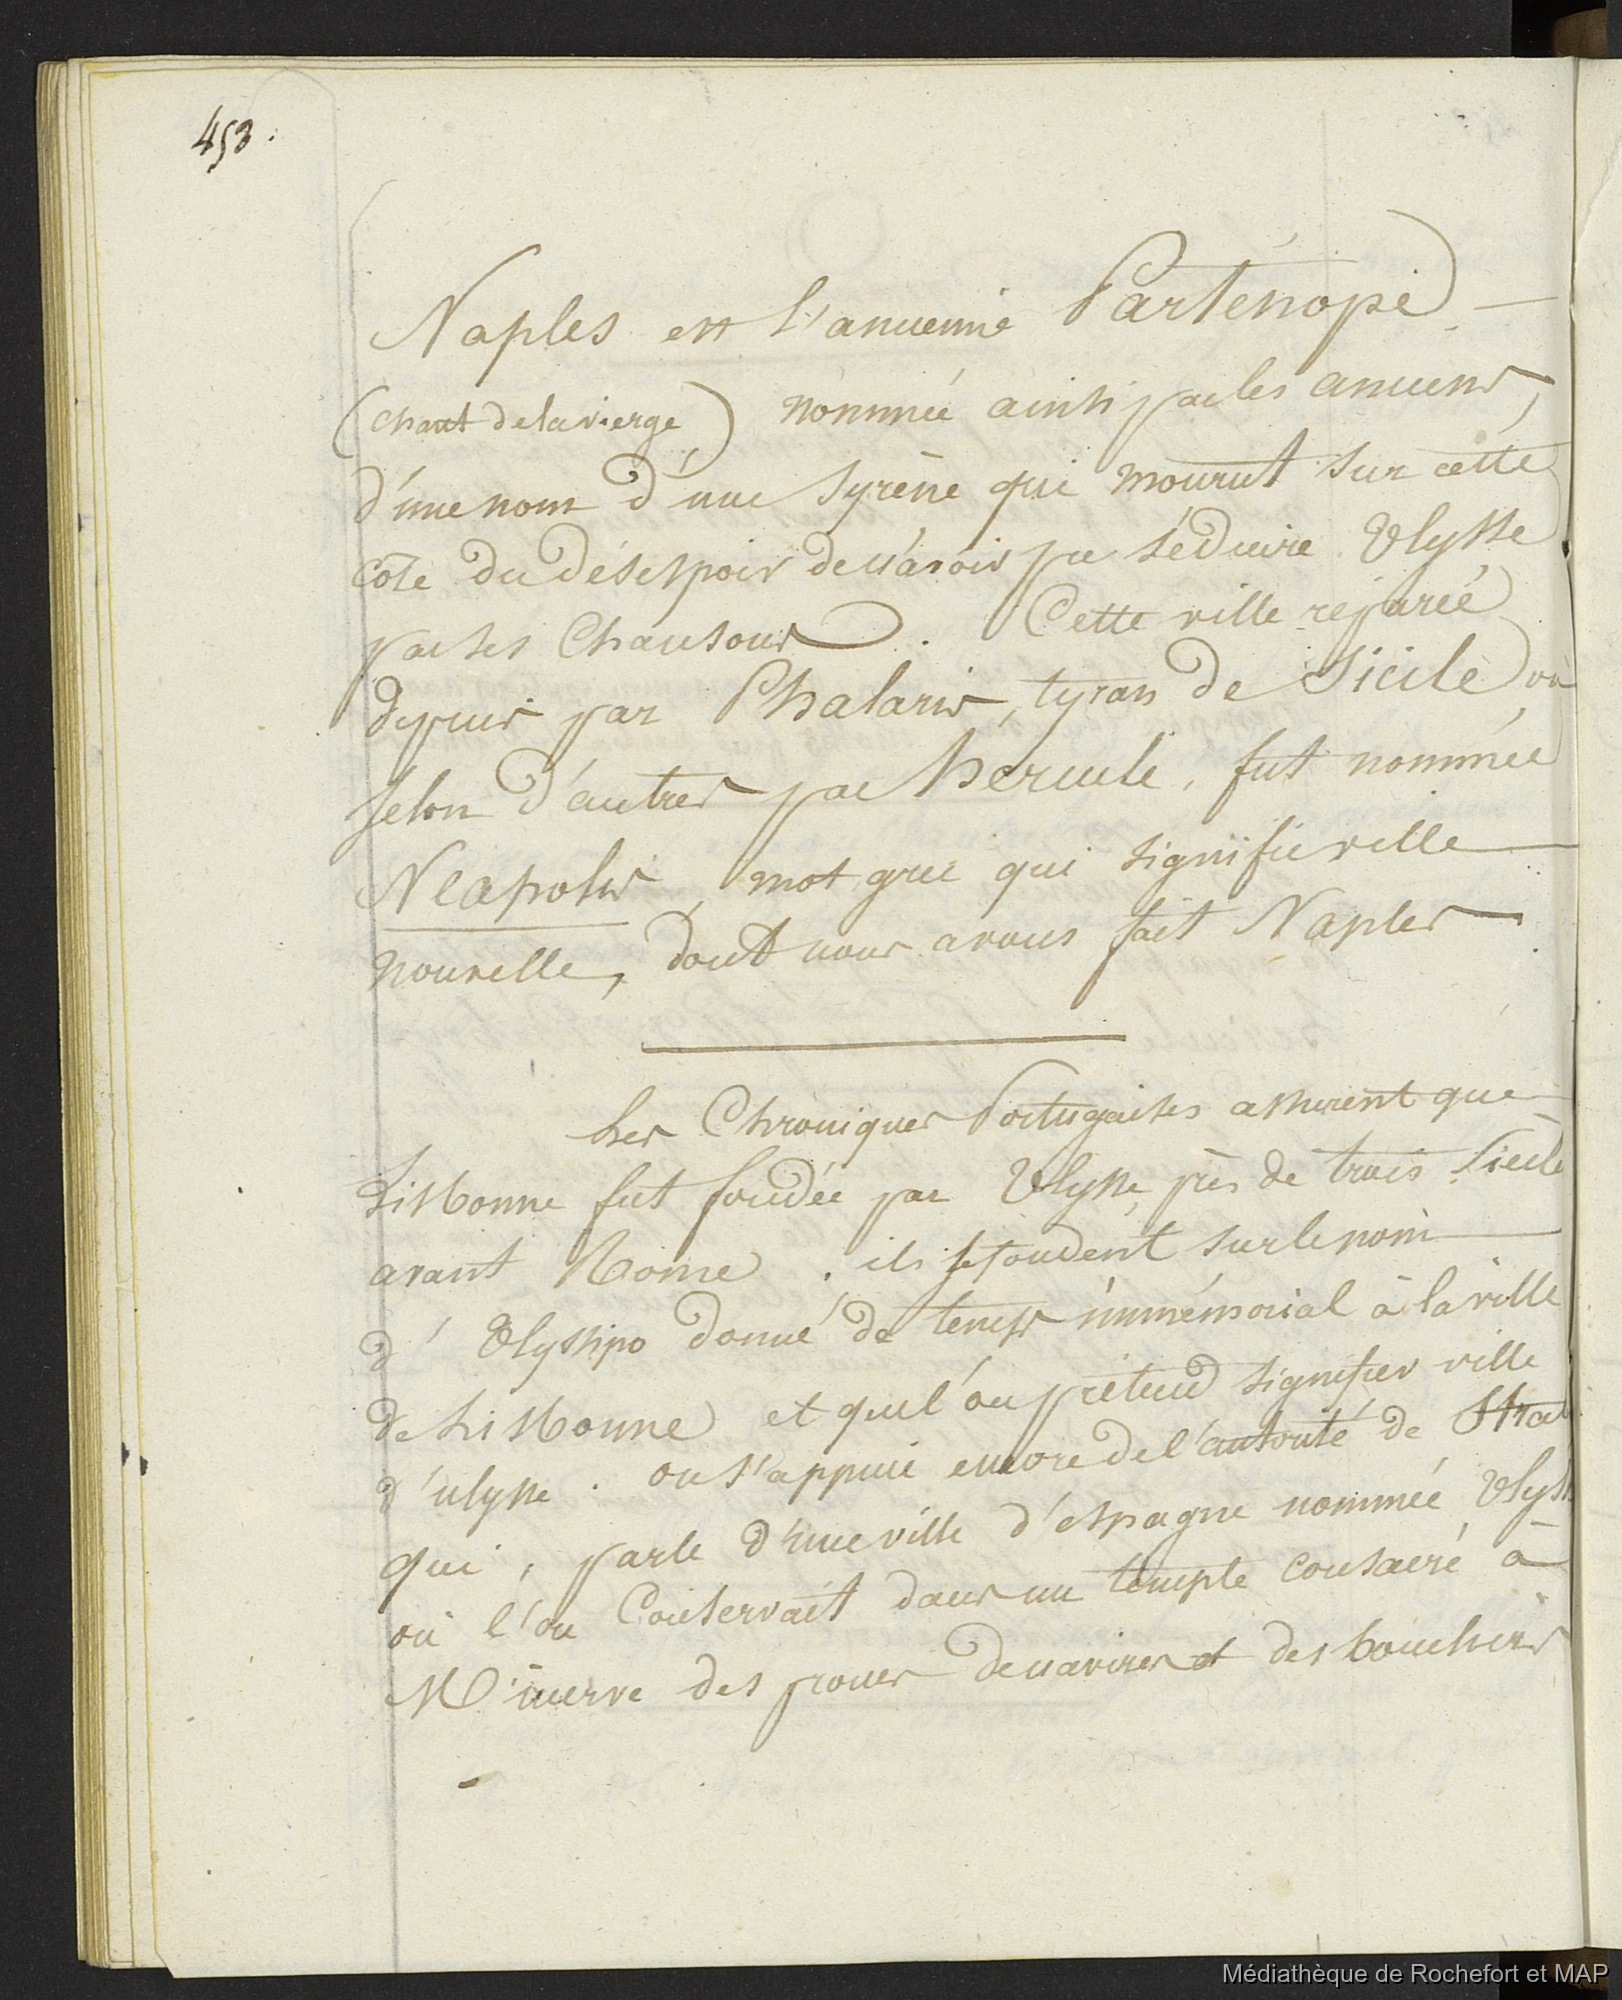 453.
Naples est l'ancienne Parténope
(chant de la vierge) nommée ainsi par les anciens,
d'une nom d'une syrène qui mourut sur cette
côte du désespoir de n'avoir pu séduire Ulysse
par ses chansons. Cette ville réparée
depuis par Phalaris, tyran de Sicile ou
selon d'autres par hercule, fut nommée
Néapolis, mot grec qui signifie ville
nouvelle, dont nous avons fait Naples.
Les Chroniques Portugaises assurent que
Lisbonne fut fondée par Ulysse, près de trois siècle
avant Rome. ils se fondent sur le nom
d'Ulyssipo donné de temps immémorial à la ville
de Lisbonne et que l'on prétend signifier ville
d'ulysse. on s'appuie encore de l'autorité de Strab
qui, parle d'une ville d'espagne nommée Ulyss
où l'on conservait dans un temple consacré à
Minerve des proues de navires et des boucliers
Médiathèque de Rochefort et MAP